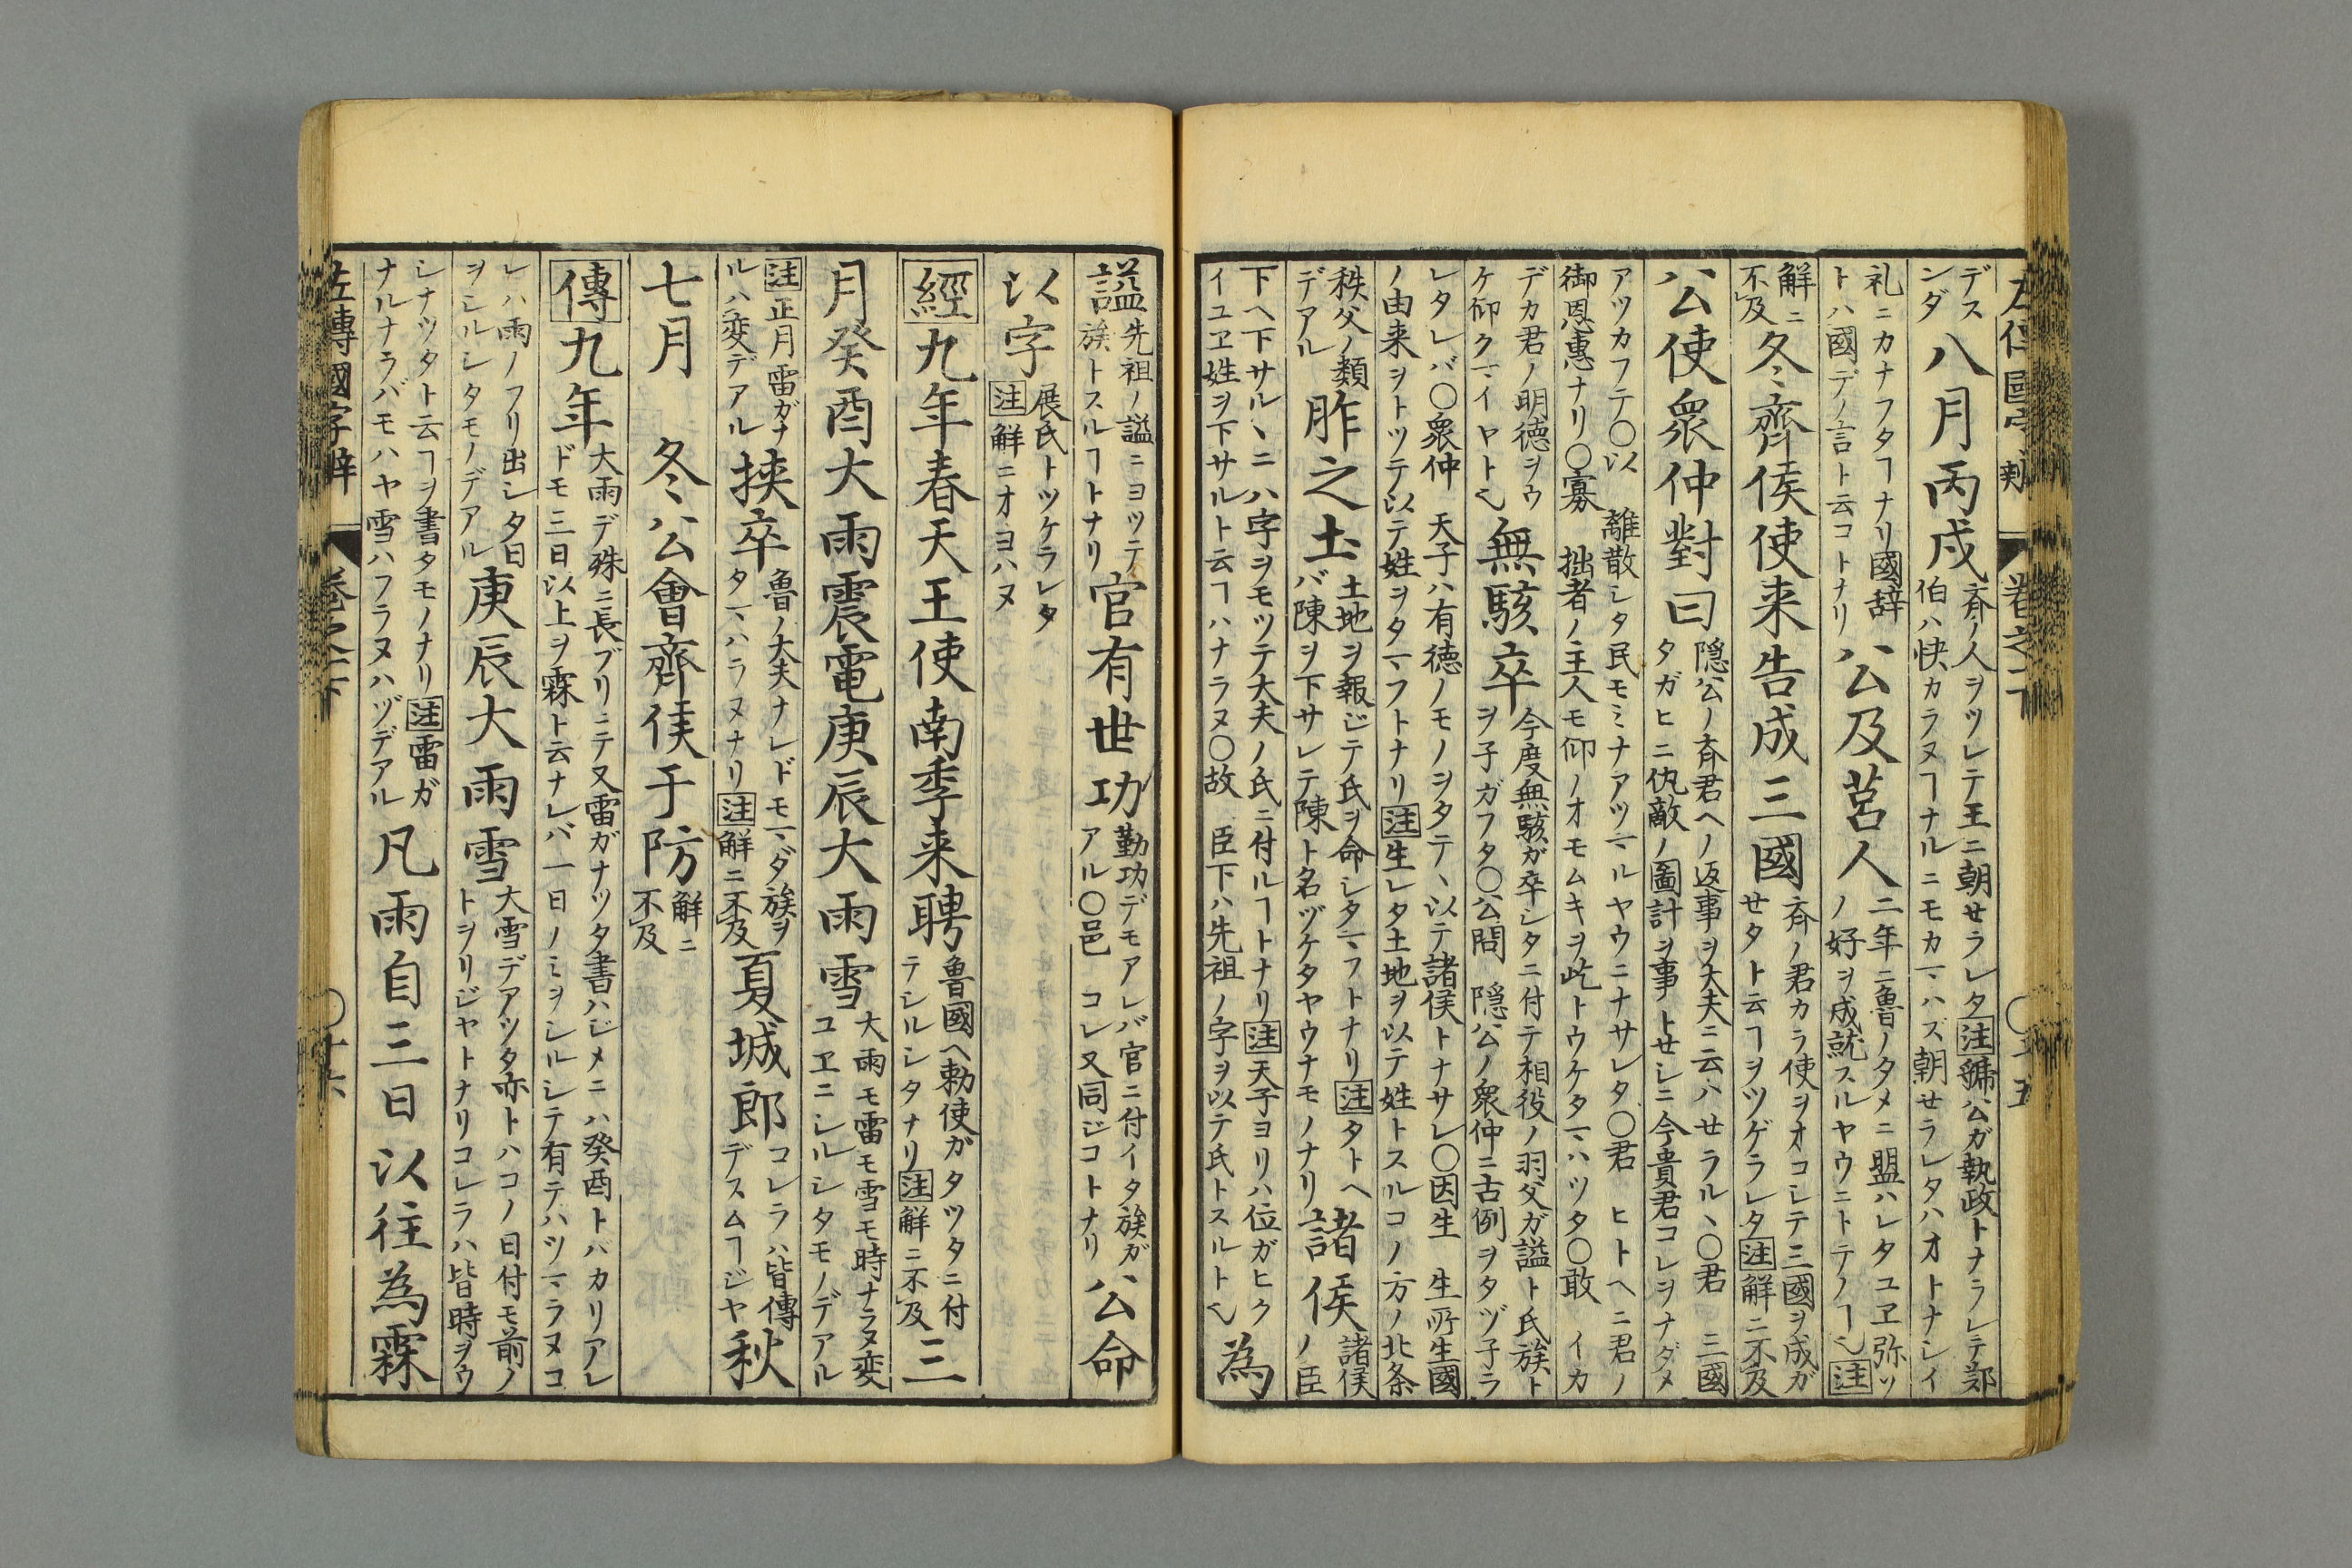 デスンダ八月丙戌斉ノ人ヲツレテ王ニ朝セラレタ注虢公ガ執政トナラレテ鄭伯ハ快カラヌヿナルニモカマハズ朝セラレタハオトナシイ
礼ニカナフタヿナリ國辞トハ國デノ言ト云コトナリ公及莒人二年ニ魯ノタメニ盟ハレタユヱ弥ソノ好ヲ成就スルヤウニトテノヿ也注
解ニ不及冬齊侯使来告成三國斉ノ君カラ使ヲオコシテ三國ヲ成ガセタト云ヿヲツゲラレタ注解ニ不及
公使衆仲對曰隠公ノ斉君ヘノ返事ヲ大夫ニ云ハセラルヽ〇君三國タガヒニ仇敵ノ圖計ヲ事トセシニ今貴君コレヲナダメ
アツカフテ〇以離散シタ民モミナアツマルヤウニナサレタ〇君ヒトヘニ君ノ御恩惠ナリ〇寡拙者ノ主人モ仰ノオモムキヲ此トウケタマハツタ〇敢イカ
デカ君ノ明徳ヲウケ仰クマイヤト也無駭卒今度無駭ガ卒シタニ付テ相役ノ羽父ガ謚ト氏族トヲ子ガフタ〇公問隠公ノ衆仲ニ古例ヲタヅ子ラ
レタレバ〇衆仲天子ハ有徳ノモノヲタテヽ以テ諸侯トナサレ〇因生生所生國ノ由来ヲトツテ以テ姓ヲタマフトナリ注生レタ土地ヲ以テ姓トスルコノ方ノ北条
秩父ノ類デアル胙之土土地ヲ報ジテ氏ヲ命シタマフトナリ注タトヘバ陳ヲ下サレテ陳ト名ヅケタヤウナモノナリ諸侯諸侯ノ臣
下ヘ下サルヽニハ字ヲモツテ大夫ノ氏ニ付ルヿトナリ注天子ヨリハ位ガヒクイユヱ姓ヲ下サルト云ヿハナラヌ〇故臣下ハ先祖ノ字ヲ以テ氏トスルト也為
謚先祖ノ謚ニヨツテ族トスルヿトナリ官有世功勤功デモアレバ官ニ付イタ族ガアル〇邑コレ又同ジコトナリ公命
以字展氏トツケラレタ注解ニオヨハヌ
經九年春天王使南季来聘魯國ヘ勅使ガタツタニ付テシルシタナリ注解ニ不及三
月癸酉大雨震電庚辰大雨雪大雨モ雷モ雪モ時ナラヌ変ユヱニシルシタモノデアル
注正月雷ガナルハ変デアル挟卒魯ノ大夫ナレドモマダ族ヲタマハラヌナリ注解ニ不及夏城郎コレラハ皆傳デスムヿジヤ秋
七月 冬公會齊侯于防解ニ不及
傳九年大雨デ殊ニ長ブリニテ又雷ガナツタ書ハジメニハ癸酉トバカリアレドモ三日以上ヲ霖ト云ナレバ一日ノミヲシルシテ有テハツマラヌコ
レハ雨ノフリ出シタ日ヲシルシタモノデアル庚辰大雨雪大雪デアツタ亦トハコノ日付モ前ノトヲリジヤトナリコレラハ皆時ヲウ
シナツタト云ヿヲ書タモノナリ注雷ガナルナラバモハヤ雪ハフラヌハヅデアル凡雨自三日以往為霖
左傳國字辯 巻之下 〇十六